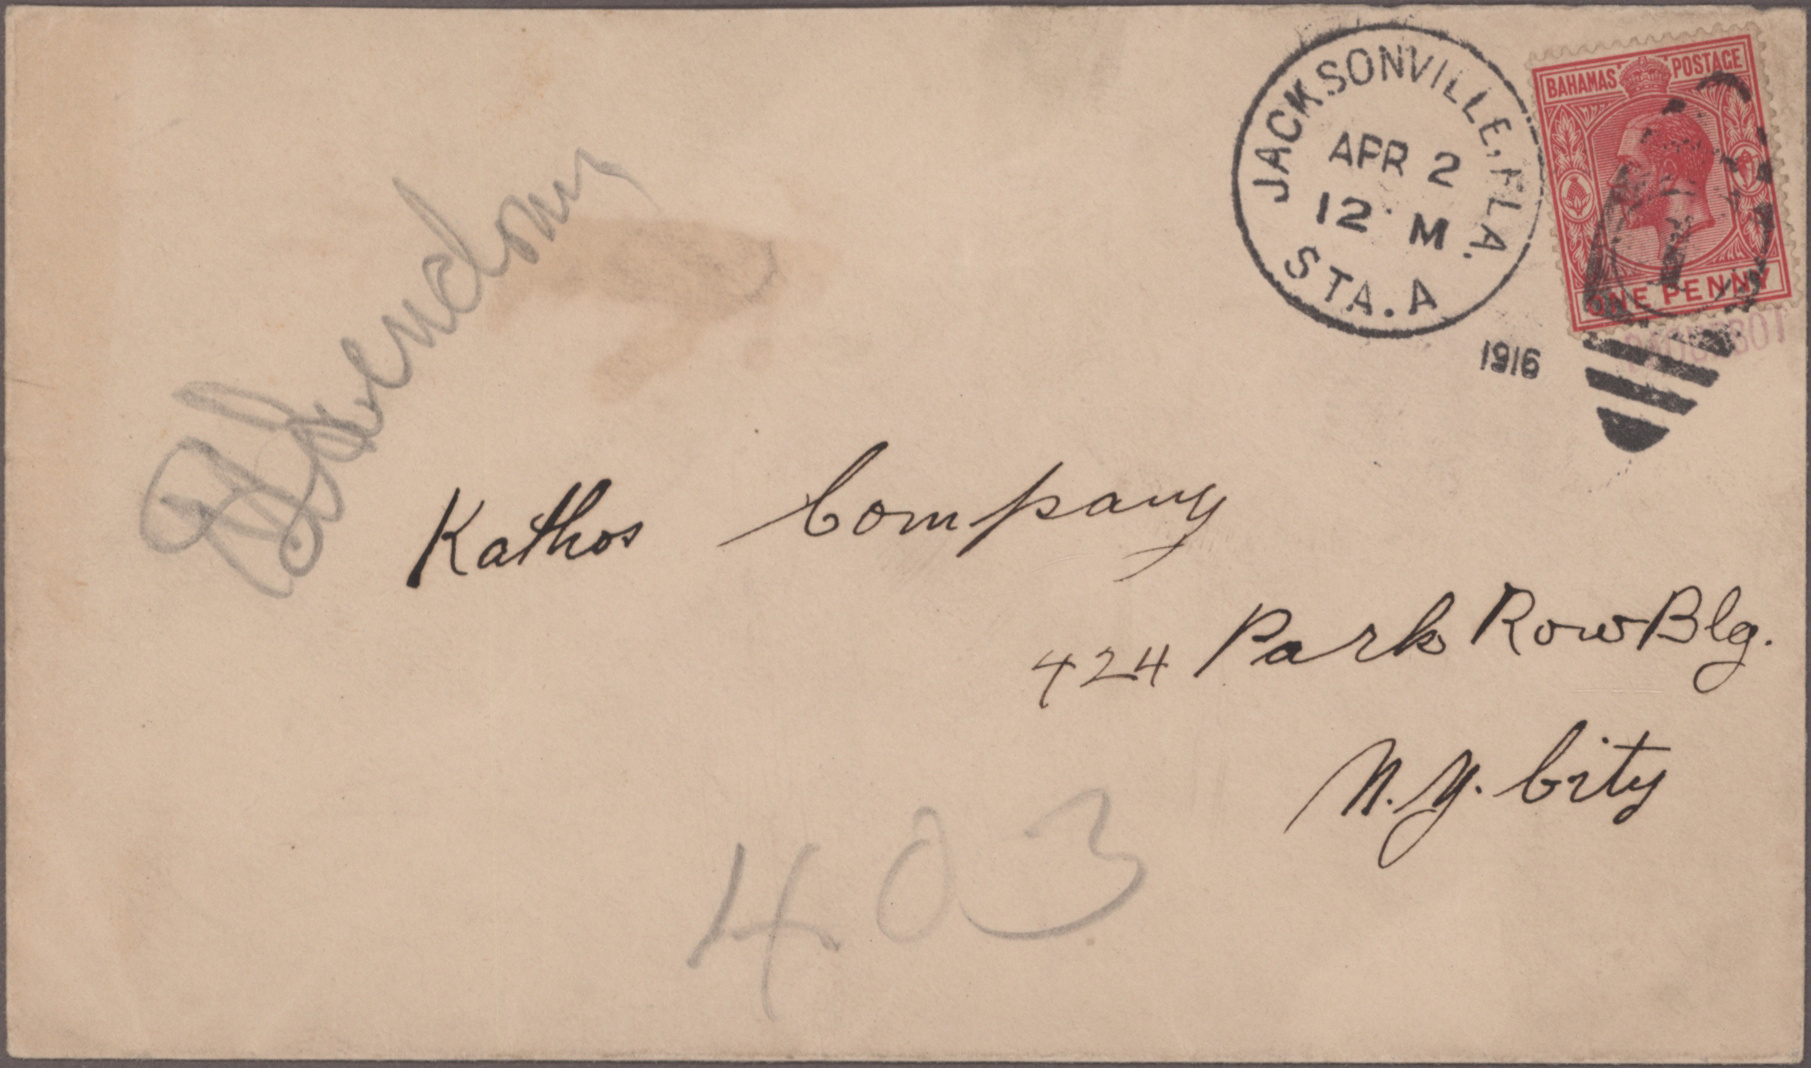 BAHAMAS POSTAGE
ONE PENNY
JACKSONVILLE, FLA.
APR 2
12 M
STA. A
1916
Kathos Company
424 Park Row Blg.
N.Y. City
403